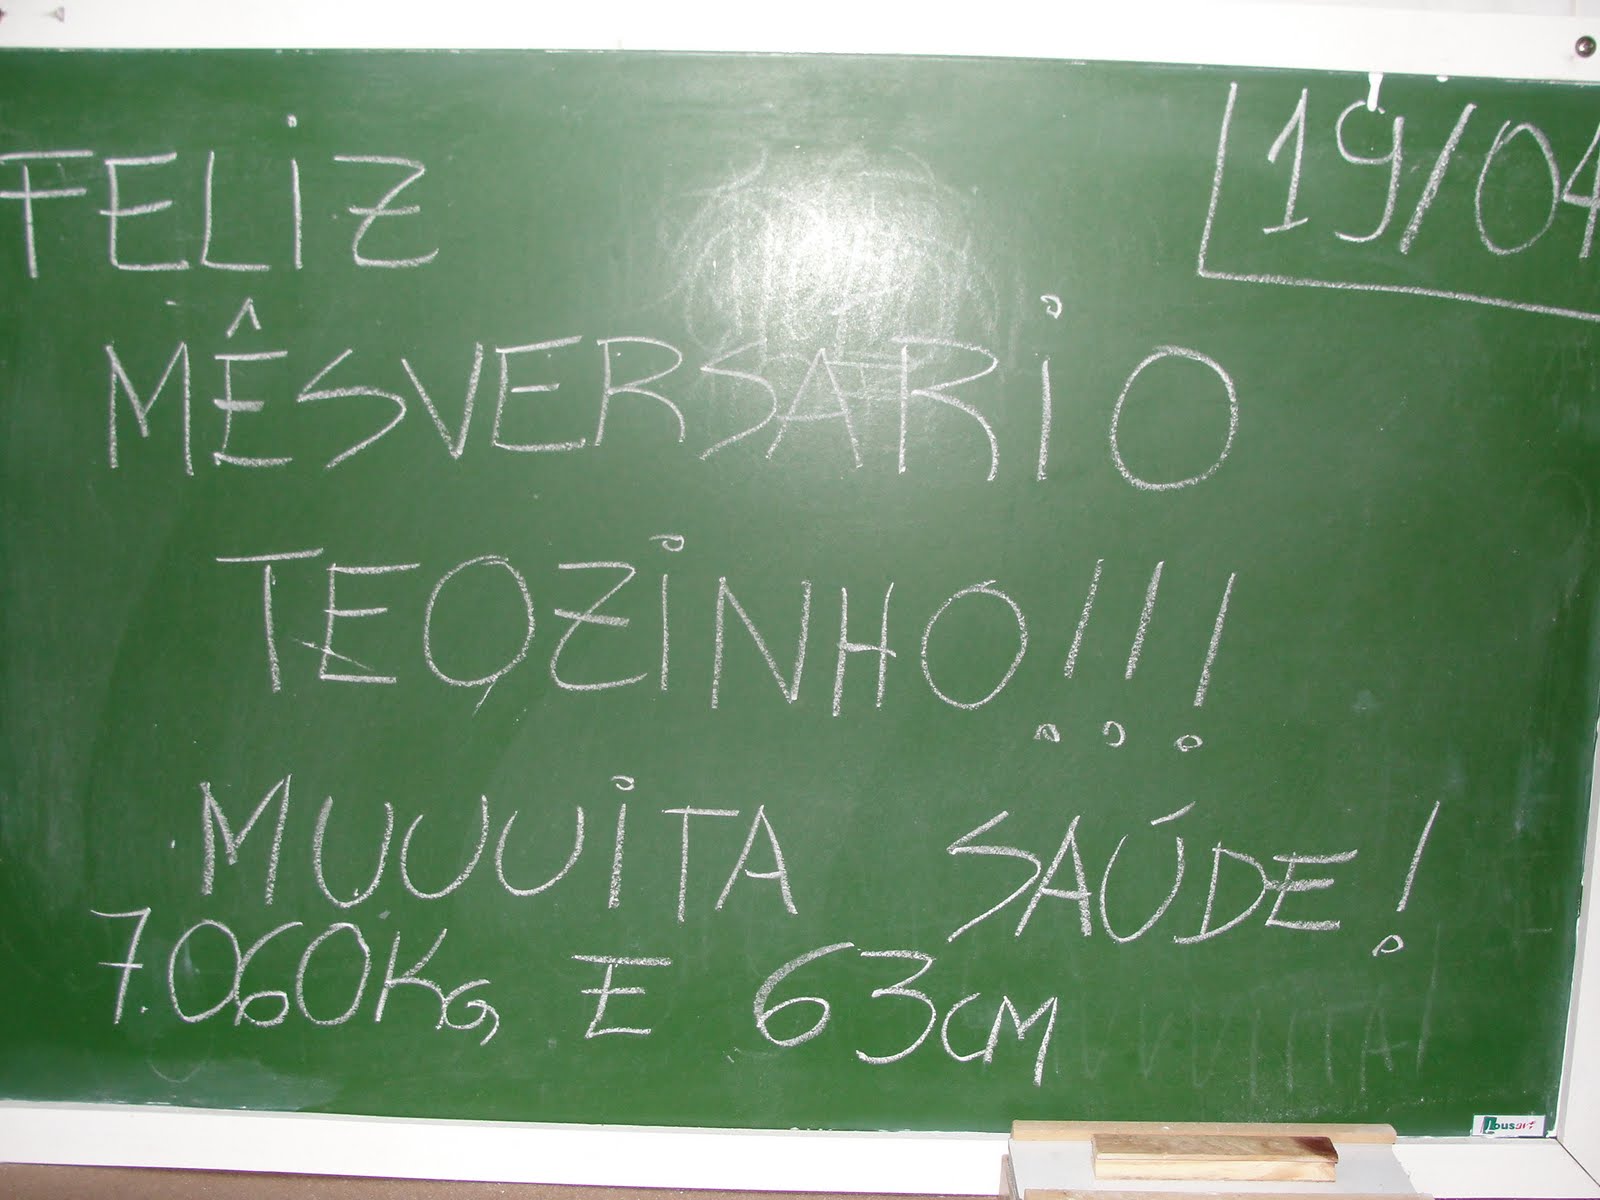 FELIZ
19/04
MÊSVERSARIO
TEOZINHO!!!
MUUUITA SAÚDE!
7.060KG E 63CM
Lousart